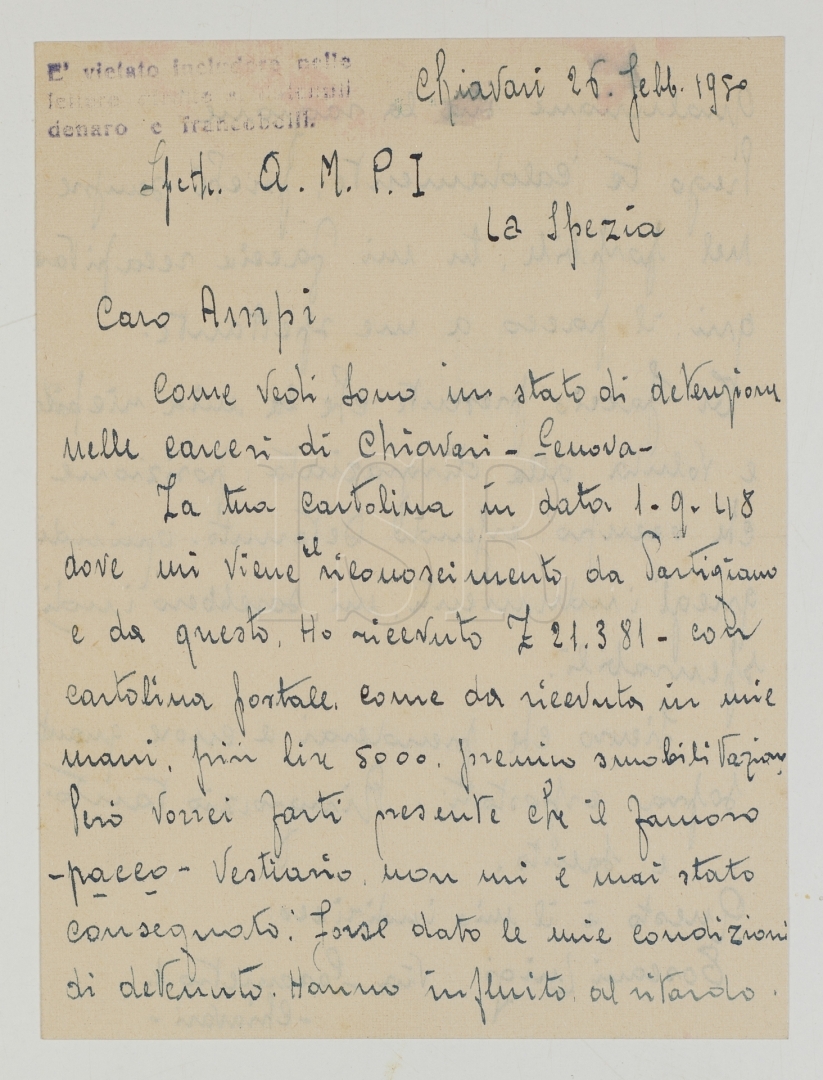 E' vietato includere nelle
lettere
denaro e francobolli.
Chiavari 26. febb. 1950
Spett. A. M. P. I
La Spezia
Caro Ampi
Come vedi sono in stato di detenzione
nelle carceri di Chiavari - Genova -
La tua cartolina in data 1-9-48
dove mi viene il riconoscimento da Partigiano
e da questo. Ho ricevuto £ 21.381 - con
cartolina postale, come da ricevuta in mie
mani, più lire 5000. premio smobilitazione
Però vorrei farti presente che il famoso
- pacco - Vestiario. non mi è mai stato
consegnato. Forse dato le mie condizioni
di detenuto. Hanno influito al ritardo.
ISR